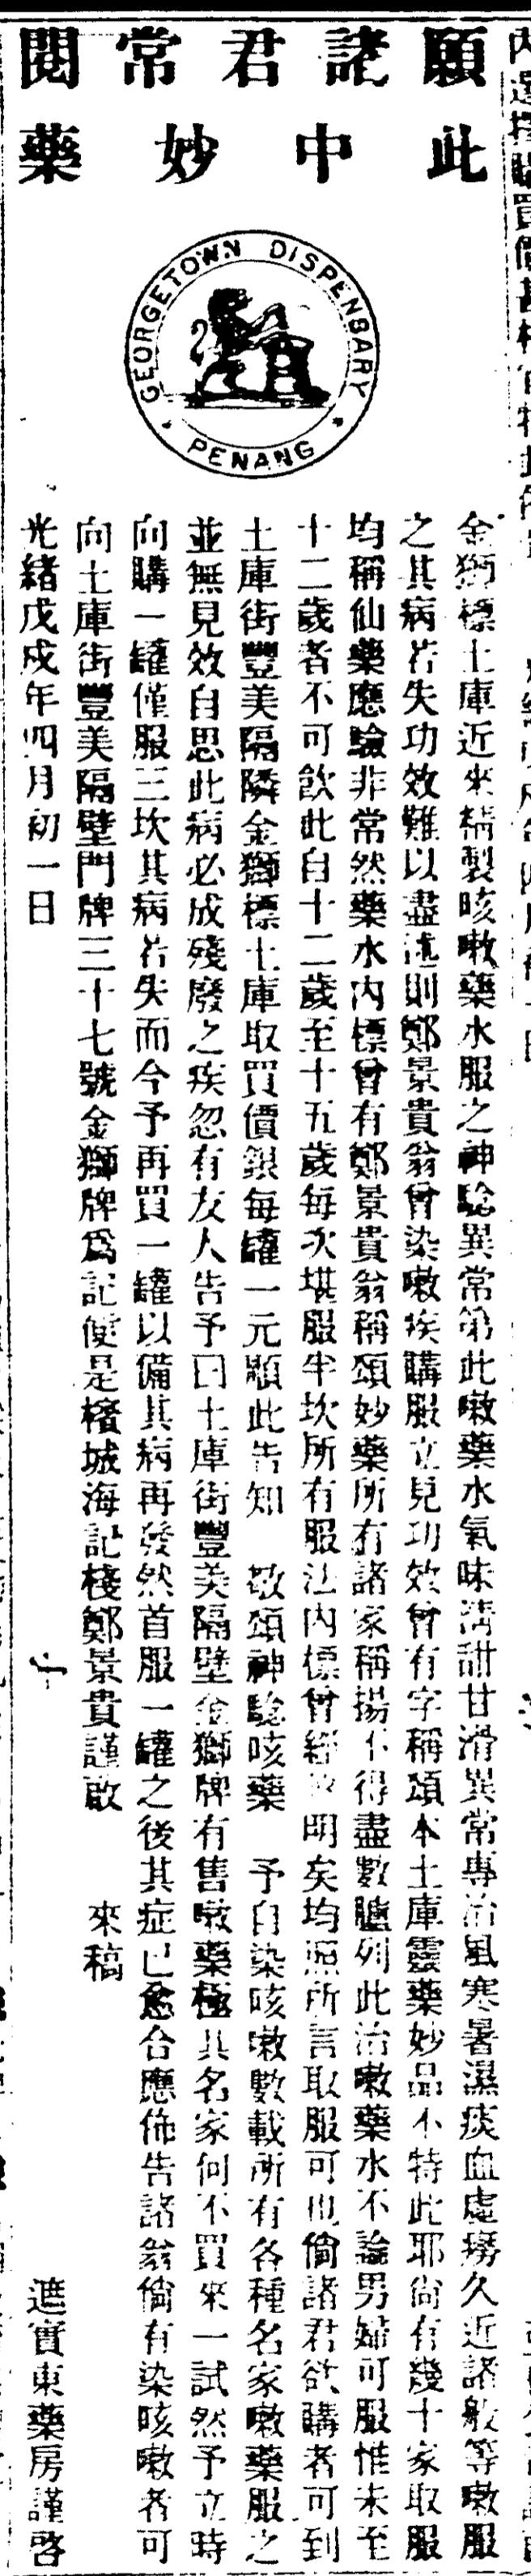 願諸君常閱
此中妙藥
GEORGETOWN DISPENSARY
PENANG
金獅標土庫近來精製咳嗽藥水服之神驗異常第此嗽藥水氣味淸甜甘滑異常專治風寒暑濕痰血虛癆久近諸般等嗽服
之其病若失功效難以盡述則鄭景貴翁曾染嗽疾購服立見功效曾有字稱頌本土庫靈藥妙品不特此耶尙有幾十家取服
均稱仙藥應驗非常然藥水內標曾有鄭景貴翁稱頌妙藥所有諸家稱揚不得盡數臚列此治嗽藥水不論男婦可服惟未至
十二歲者不可飲此自十二歲至十五歲每次堪服半坎所有服法內標曾經明矣均照所言取服可也倘諸君欲購者可到
土庫街豐美隔隣金獅標土庫取買價銀每罐一元順此告知 敬頌神驗咳藥 予自染咳嗽數載所有各種名家嗽藥服之
並無見效自思此病必成殘廢之疾忽有友人告予曰土庫街豐美隔壁金獅牌有售嗽藥極其名家何不買來一試然予立時
向購一罐僅服三坎其病若失而今予再買一罐以備其病再發然首服一罐之後其症已愈合應佈告諸翁倘有染咳嗽者可
向土庫街豐美隔壁門牌三十七號金獅牌爲記便是檳城海記棧鄭景貴謹啟 來稿
光緖戊戌年四月初一日 遮實東藥房謹啓